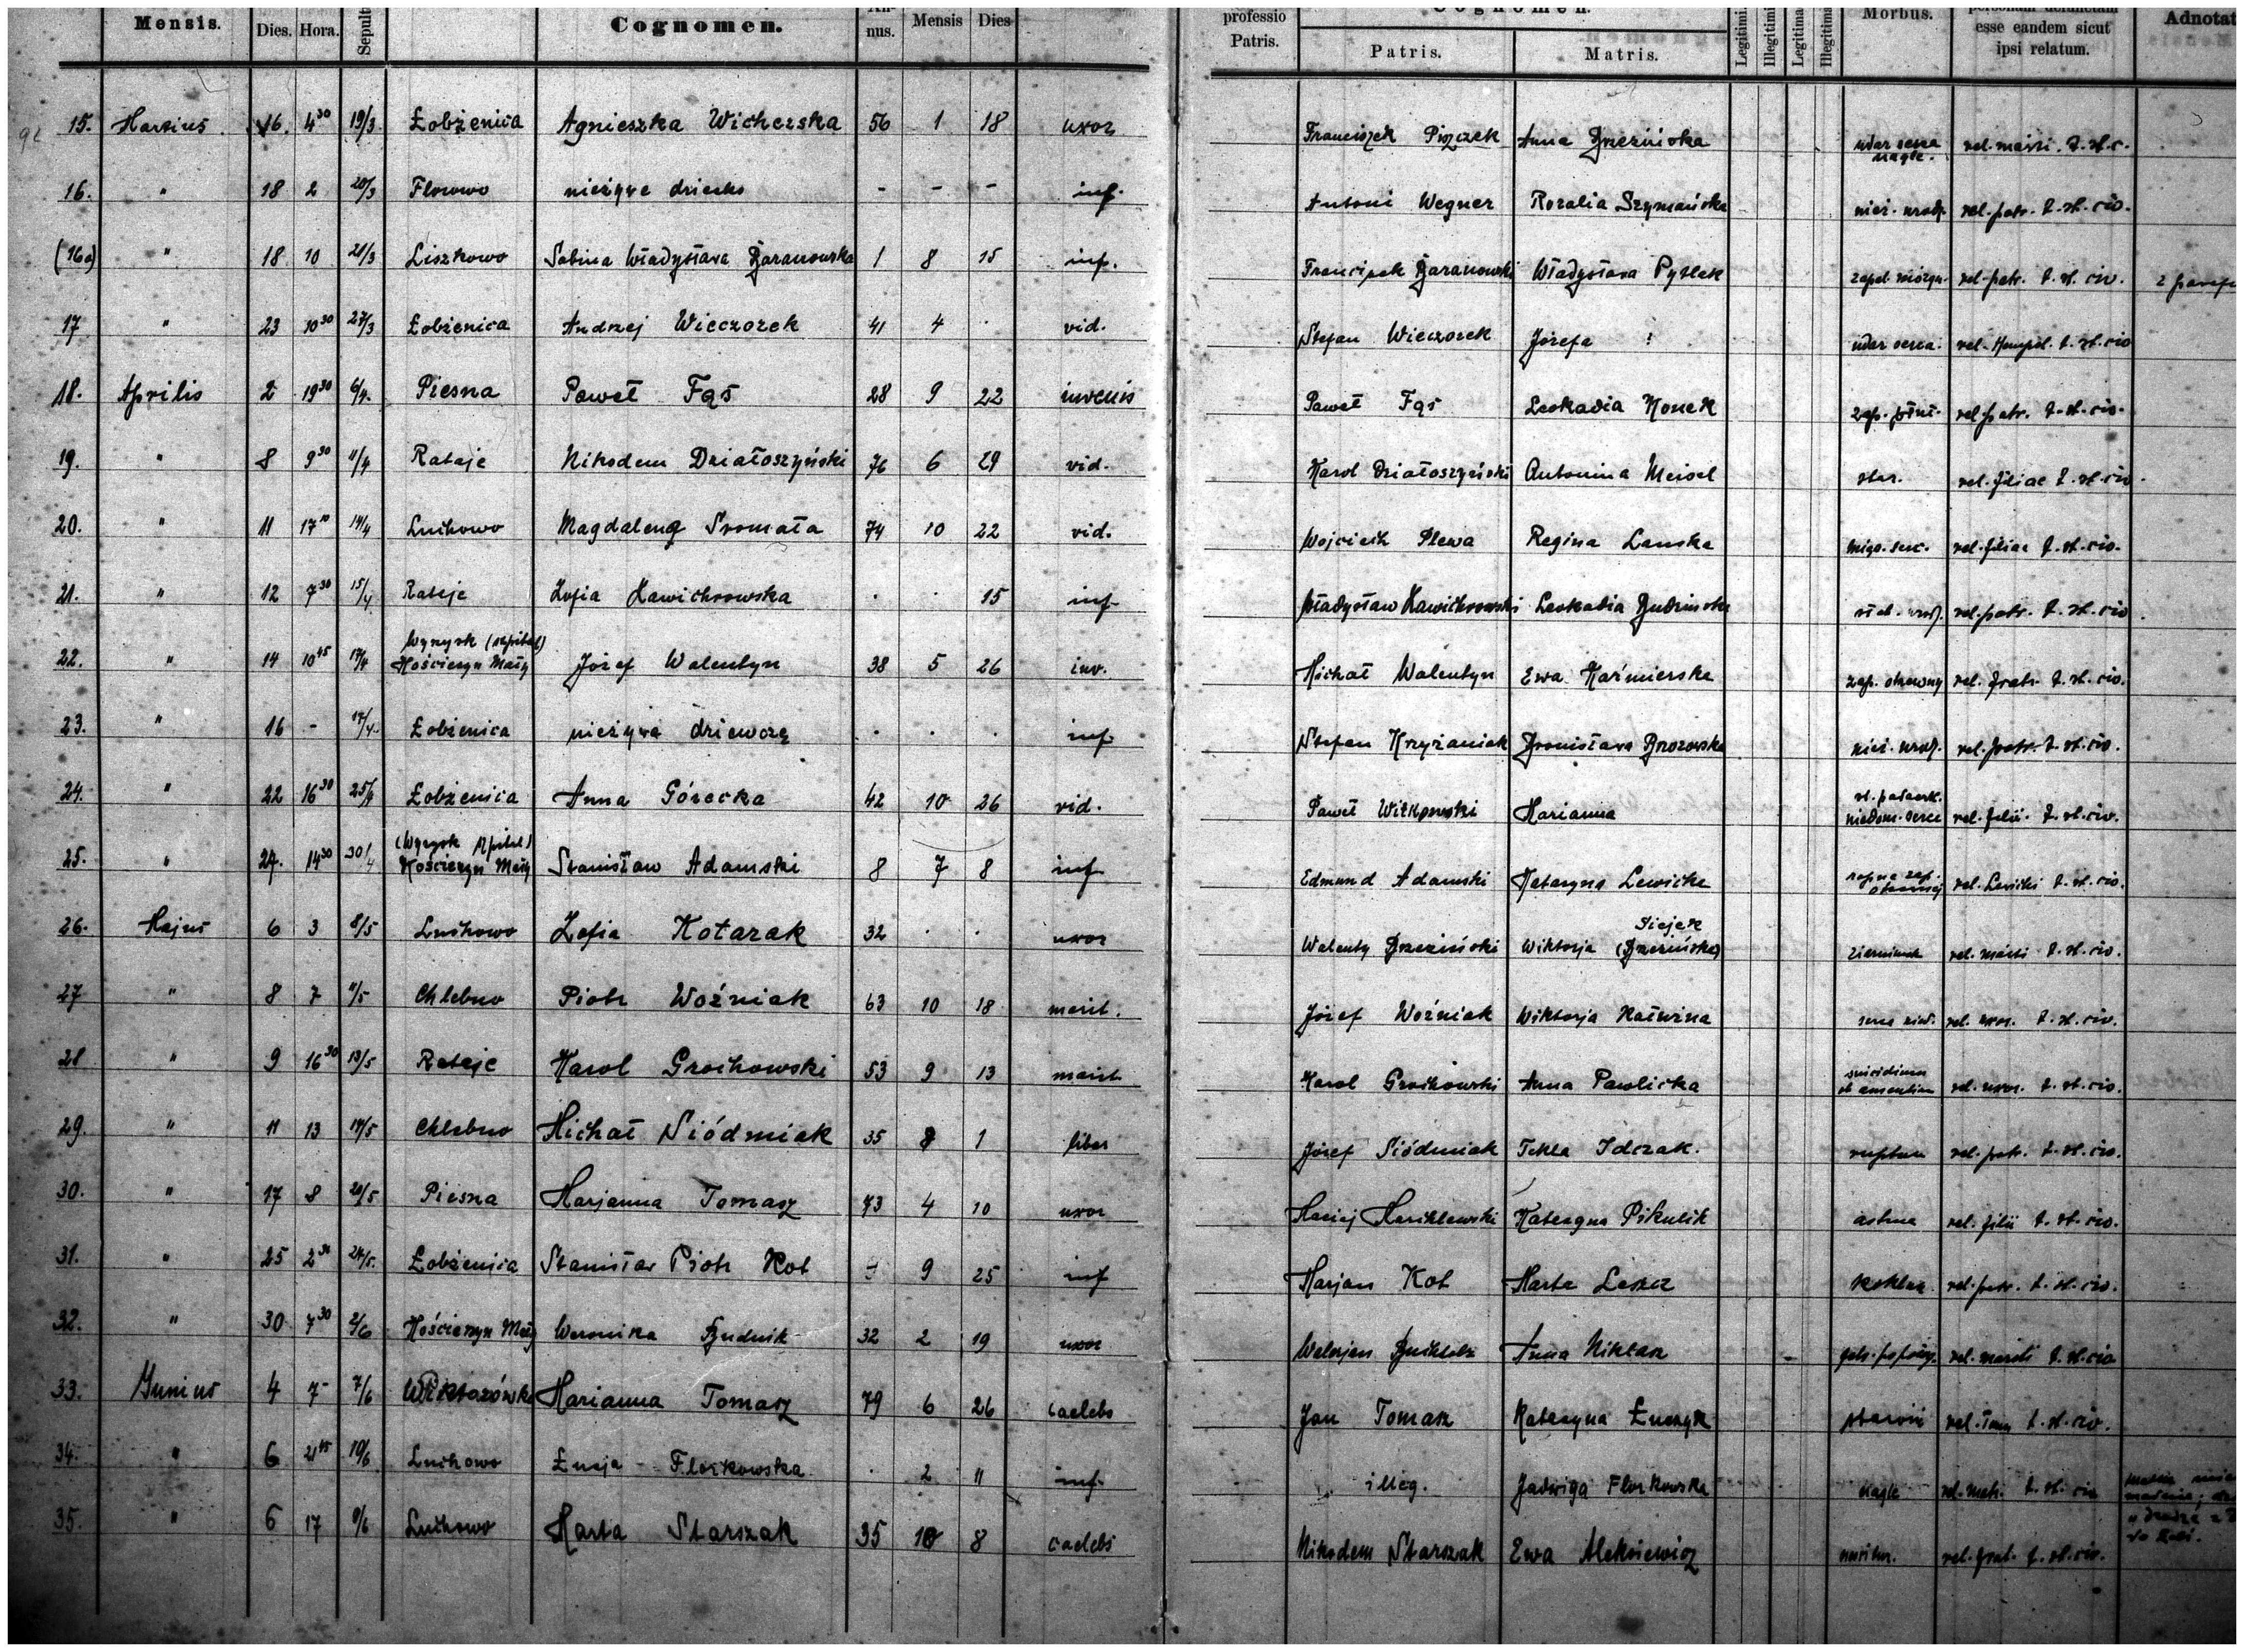 Mensis. Dies. Hora. Sepult Cognomen. nus. Mensis Dies professio Patris. Cognomen. Patris. Matris. Legitimi. Illegitimi Legitima Illegitima Morbus. esse eandem sicut ipsi relatum. Adnotat
15. Martius. 16. 4 30 19/3 Łobżenica Agnieszka Wicherska 56 1 18 uxor Franciszek Piszczek Anna Brzezińska udar serca nagle. rel. mariti. t. st. c.
16. " 18 2 20/3 Florowo nieżywe dziecko - - - inf. Antoni Wegner Rozalia Szymańska nież. urodz. rel. patr. t. st. civ.
(16a) " 18 10 21/3 Liszkowo Sabina Władysława Baranowska 1 8 15 inf. Franciszek Baranowski Władysława Pytlek zapal. mózgu. rel. patr. t. st. civ. z parafi
17 " 23 10 30 27/3 Łobżenica Andrzej Wieczorek 41 4 . vid. Stefan Wieczorek Józefa ? udar serca. rel. Hempel. t. st. civ
18. Aprilis 2 19 30 6/4. Piesna Paweł Fąs 28 9 22 iuvenis Paweł Fąs Leokadia Konek zap. płuc. rel. patr. t. st. civ.
19. " 8 9 30 11/4 Rataje Nikodem Działoszyński 76 6 29 vid. Karol Działoszyński Antonina Meisel star. rel. filiae t. st. civ.
20. " 11 17 10 14/4 Luchowo Magdalena Sromała 74 10 22 vid. Wojciech Plewa Regina Lanska rel. filiae t. st. civ.
21. " 12 7 30 15/4 Rataje Zofia Kawichrowska . . 15 inf. Władysław Kawichrowski Leokadia Budzińska słab. urodz. rel. patr. t. st. civ.
22. " 14 10 45 17/4 Wyrzysk (szpital) Kościerzyn Mały Józef Walentyn 38 5 26 iuv. Michał Walentyn Ewa Kaźmierska zap. otrzewny rel. fratr. t. st. civ.
23. " 16 - 17/4. Łobżenica nieżywe dziewczę . . . inf. Stefan Krzyżaniak Bronisława Brzozowska nież. urodz. rel. patr. t. st. civ.
24. " 22 16 30 25/4 Łobżenica Anna Górecka 42 10 26 vid. Paweł Witkowski Marianna niedom. serca rel. filii. t. st. civ.
25. " 27. 14 30 30/4 (Wyrzysk szpital) Kościerzyn Mały Stanisław Adamski 8 7 8 inf. Edmund Adamski Katarzyna Lewicka ropne zap. otrzewnej rel. Lewicki t. st. civ.
26. Majus 6 3 8/5 Luchowo Zofia Kotarak 32 . . uxor Walenty Brzeziński Wiktorja Siejek (Brzezińska) rel. mariti t. st. civ.
27 " 8 7 11/5 Chlebno Piotr Woźniak 63 10 18 marit. Józef Woźniak Wiktorja Kaźwina serca rel. uxor. t. st. civ.
28 " 9 16 30 13/5 Rataje Karol Grochowski 53 9 13 marit. Karol Grochowski Anna Pawlicka suicidium ob amentiam rel. uxor. t. st. civ.
29. " 11 13 14/5 Chlebno Michał Siódmiak 35 8 1 liber Józef Siódmiak Tekla Idczak. ruptura rel. patr. t. st. civ.
30. " 17 8 20/5 Piesna Marjanna Tomasz 73 4 10 uxor Maciej Marchlewski Katarzyna Pikulik astma rel. filii t. st. civ.
31. " 25 2 30 27/5. Łobżenica Stanisław Piotr Kot 9 25 inf Marjan Kot Marta Leszcz koklusz rel. patr. t. st. civ.
32. " 30 7 30 2/6 Kościerzyn Mały Weronika Budnik 32 2 19 uxor Walerjan Anna Niklarz rel. mariti t. st. civ
33. Junius 4 7 - 7/6 Wiktorówko Marianna Tomasz 79 6 26 caelebs Jan Tomasz Katarzyna Łuczyk starość rel. Tom. t. st. civ.
34. " 6 21 45 10/6 Luchowo Łucja Florkowska . 2 11 inf. illeg. Jadwiga Florkowska nagle rel. matr. t. st. civ
35. " 6 17 9/6 Luchowo Marta Starszak 35 10 8 caelebs Nikodem Starszak Ewa Aleksiewicz rel. frat. t. st. civ.